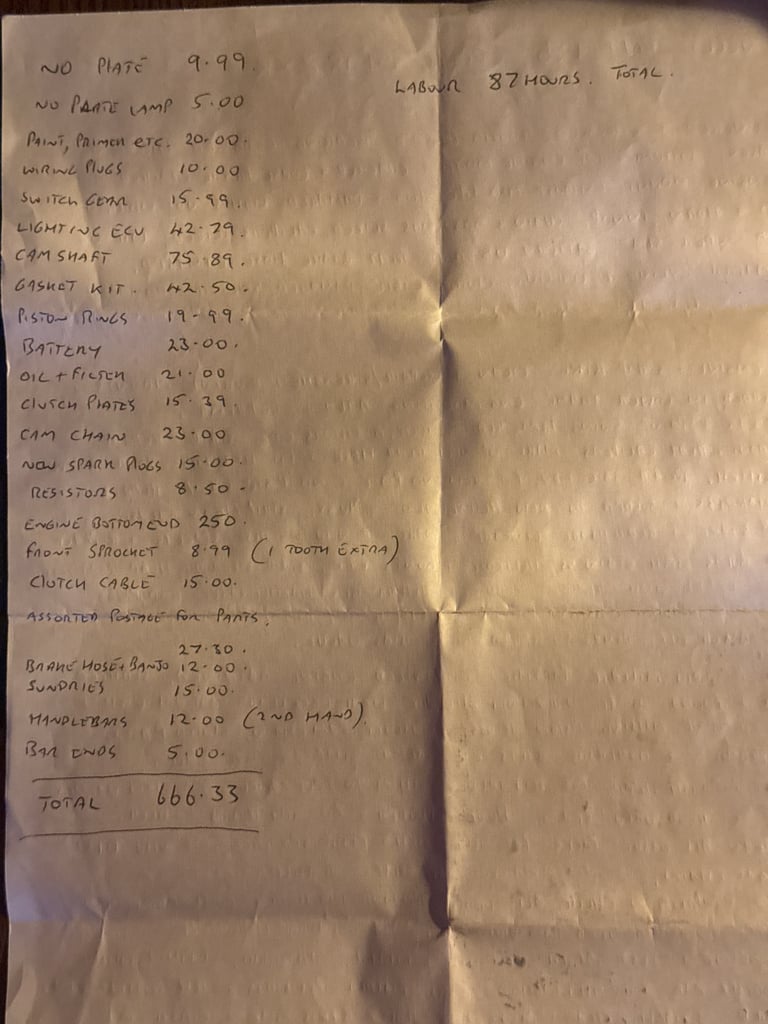 NO PLATE 9.99.
LABOUR 87 HOURS. TOTAL.
NO PLATE LAMP 5.00
PAINT, PRIMER ETC. 20.00.
WIRING PLUGS 10.00
SWITCH GEAR 15.99.
LIGHTING ECU 42.79.
CAM SHAFT 75.89.
GASKET KIT. 42.50.
PISTON RINGS 19-99.
BATTERY 23.00.
OIL + FILTER 21.00
CLUTCH PLATES 15.39.
CAM CHAIN 23.00
NEW SPARK PLUGS 15.00.
RESISTORS 8.50-
ENGINE BOTTOM END 250.
FRONT SPROCKET 8.99 (1 TOOTH EXTRA)
CLUTCH CABLE 15.00.
ASSORTED POSTAGE FOR PARTS.
27.30.
BRAKE HOSE + BANJO 12.00.
SUNDRIES 15.00.
HANDLEBARS 12.00 (2ND HAND).
BAR ENDS 5.00.
TOTAL 666.33